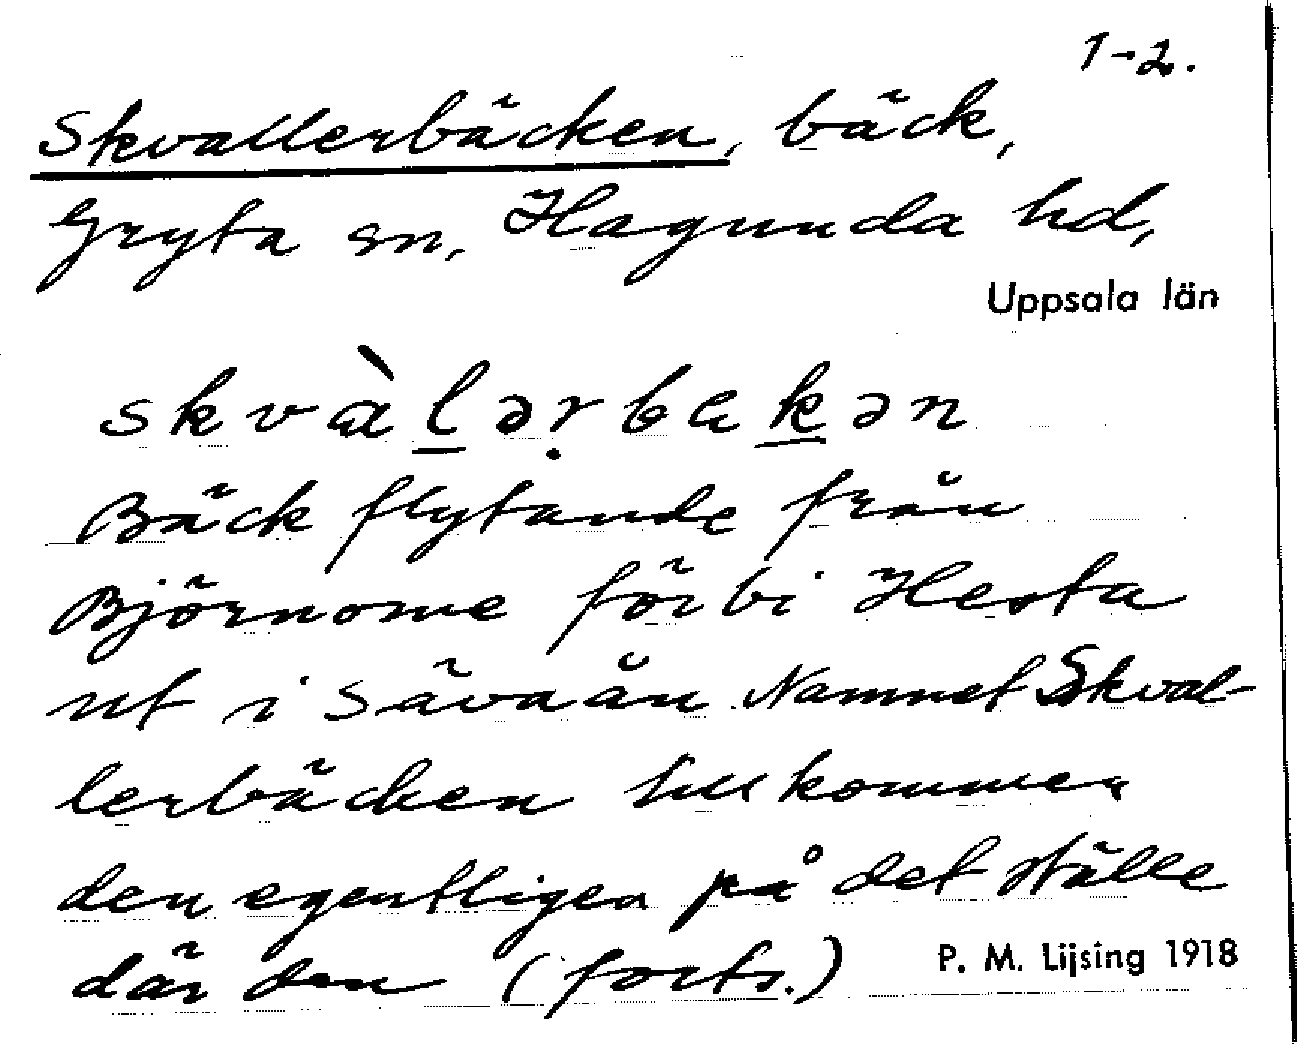 1-2.
Skvallerbäcken, bäck,
Gryta sn, Hagunda hd,
Uppsala län
skvàlərbakən
Bäck flytande från
Björnome förbi Hesta
ut i Sävaån. Namnet Skval-
lerbäcken tillkommer
den egentligen på det ställe
där den (forts.)
P. M. Lijsing 1918